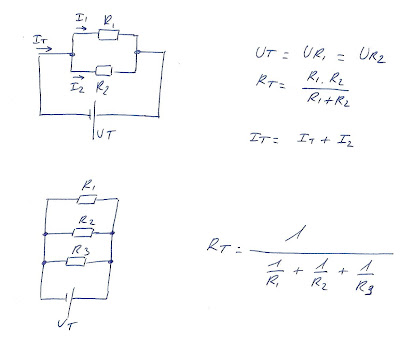 I1 R1
IT
I2 R2
UT
UT = UR1 = UR2
RT = R1 . R2 / R1 + R2
IT = IT + I2
R1
R2
R3
UT
RT = 1 / 1/R1 + 1/R2 + 1/R3